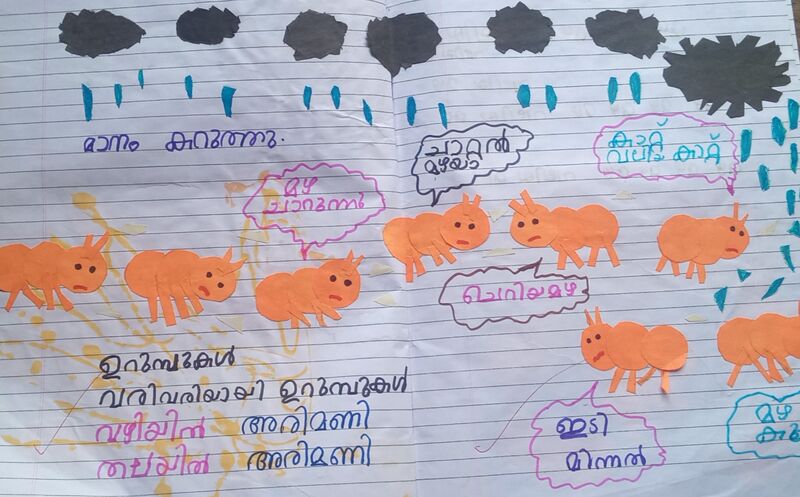 മാനം കറുത്തു.
മഴ
ചാറുന്നു
ചാറ്റൽ
മഴയാ
കാറ്റ്
വലിയ കാറ്റ്
ചെറിയമഴ
ഉറുമ്പുകൾ
വരിവരിയായി ഉറുമ്പുകൾ
വഴിയിൽ അരിമണി
തലയിൽ അരിമണി
ഇടി
മിന്നൽ
മഴ